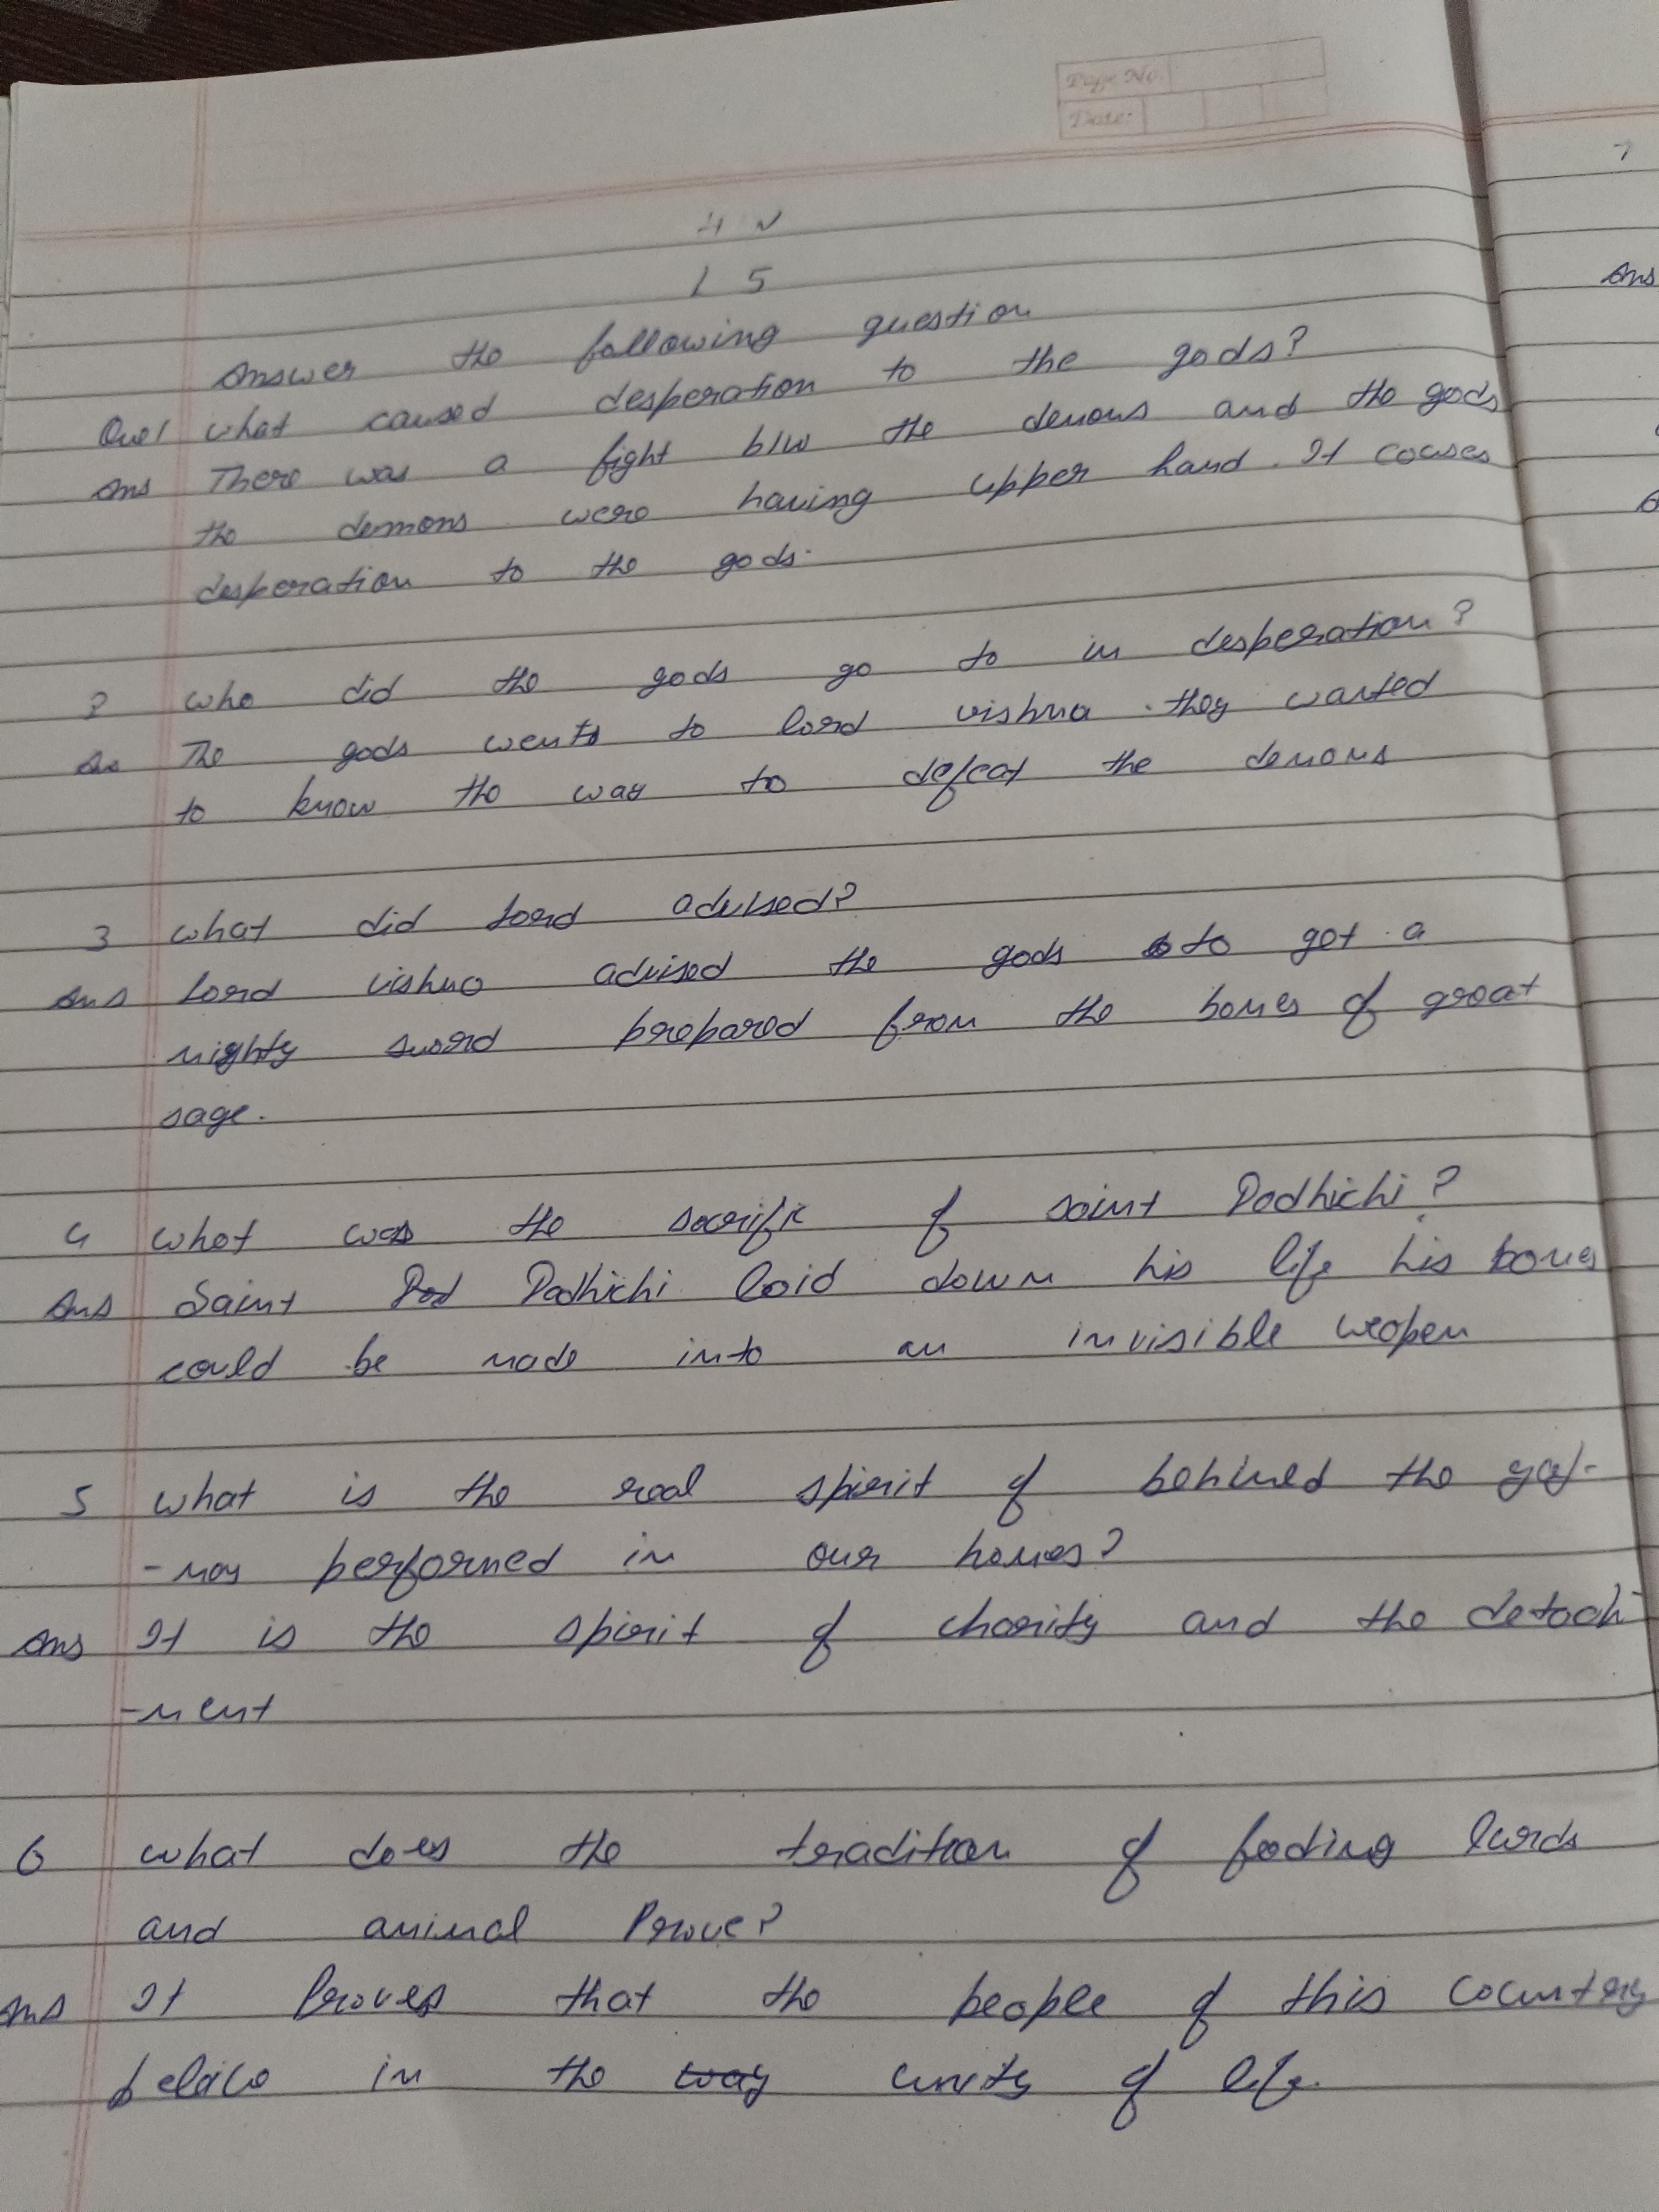 Page No.
Date:
H W
L 5
Answer the following question
Que1 what caused desperation to the gods?
Ans There was a fight b/w the demons and the gods
the demons were having upper hand. It couses
desperation to the gods.
2 who did the gods go to in desperation?
Ans The gods went to lord vishnu. they wanted
to know the way to defeat the demons
3 what did lord advised?
Ans Lord vishnu advised the gods to get a
mighty sword prepared from the bones of great
sage.
4 what was the sacrific of saint Dadhichi?
Ans Saint Dadhichi laid down his life his bones
could be made into an invisible weopen
5 what is the real spirit of behined the yaj-
-nas performed in our homes?
Ans It is the spirit of charity and the detach-
-ment
6 what does the tradition of feeding
and animal Prove?
Ans It Proves that the people of this country
in the way unity of life.
Ans